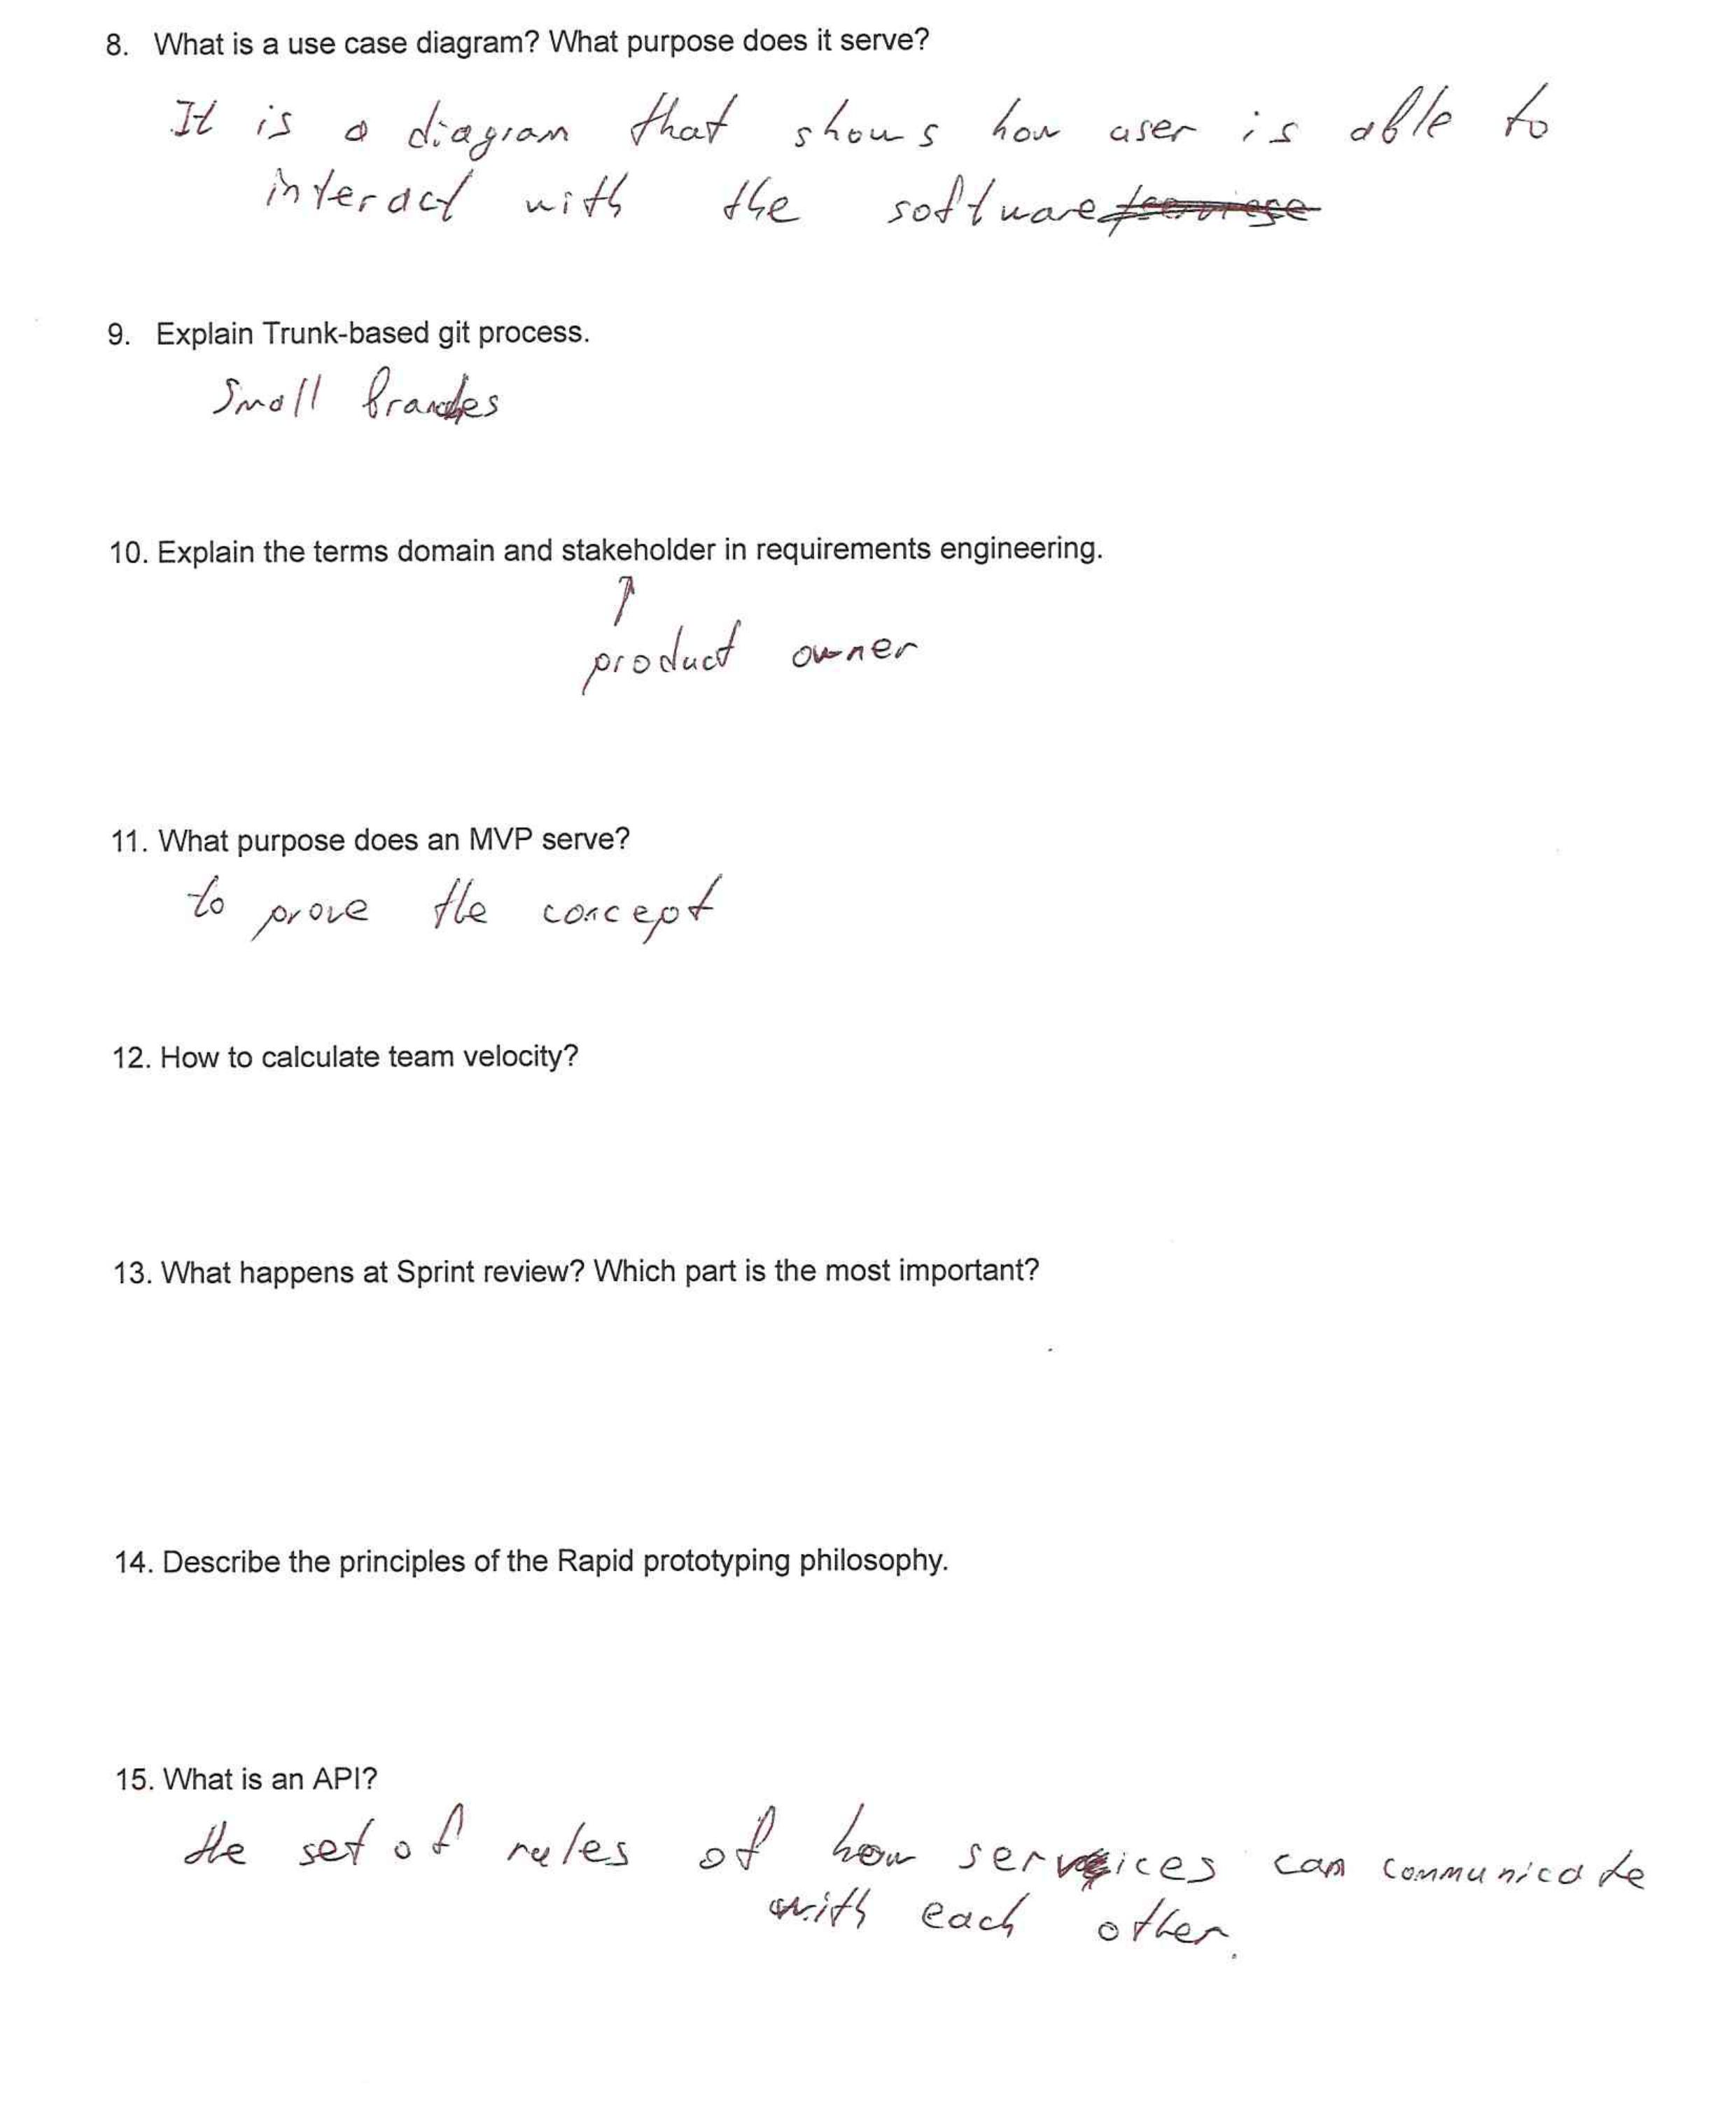 8. What is a use case diagram? What purpose does it serve?
It is a diagram that shows how user is able to
interact with the software
9. Explain Trunk-based git process.
Small branches
10. Explain the terms domain and stakeholder in requirements engineering.
↑
product owner
11. What purpose does an MVP serve?
to prove the concept
12. How to calculate team velocity?
13. What happens at Sprint review? Which part is the most important?
14. Describe the principles of the Rapid prototyping philosophy.
15. What is an API?
the set of rules of how services can communicate
with each other.